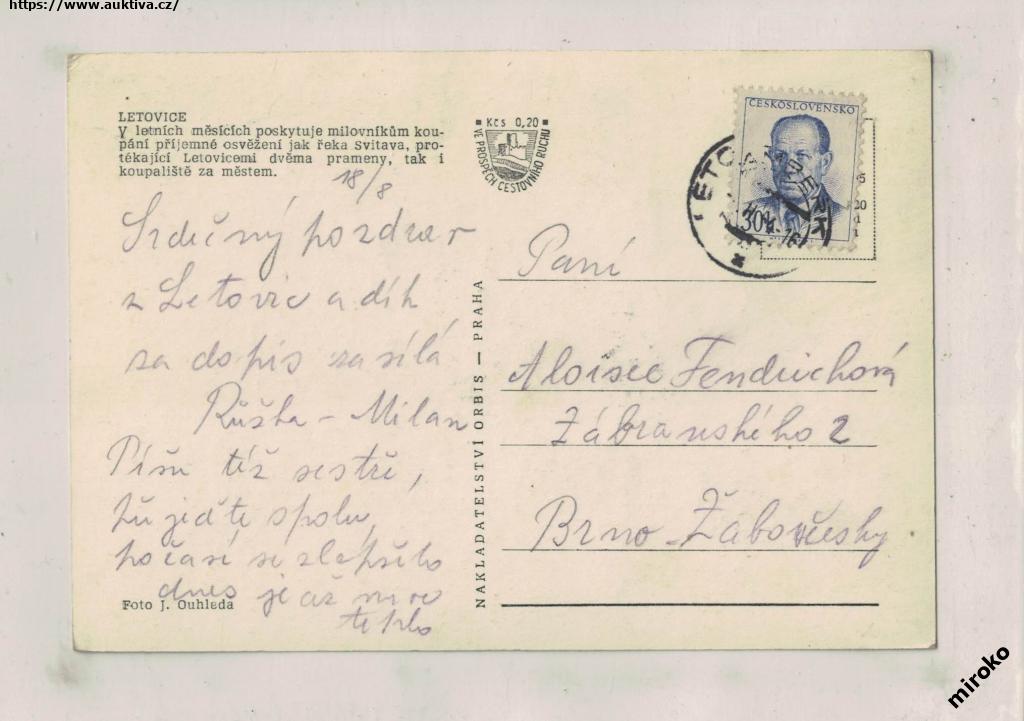 https://www.auktiva.cz/
LETOVICE
V letních měsících poskytuje milovníkům kou-
pání příjemné osvěžení jak řeka Svitava, pro-
tékající Letovicemi dvěma prameny, tak i
koupaliště za městem.
Kčs 0,20
VE PROSPĚCH CESTOVNÍHO RUCHU
ČESKOSLOVENSKO
30
18/8
Srdečný pozdrav
z Letovic a dík
za dopis zasílá
Růžka - Milan
Píšu též sestře,
spolu,
počasí se zlepšilo
dnes je až moc
teplo
Foto J. Ouhleda
NAKLADATELSTVÍ ORBIS — PRAHA
Paní
Aloisie Fendrichová
Zábranského 2
Brno - Žabovřesky
miroko